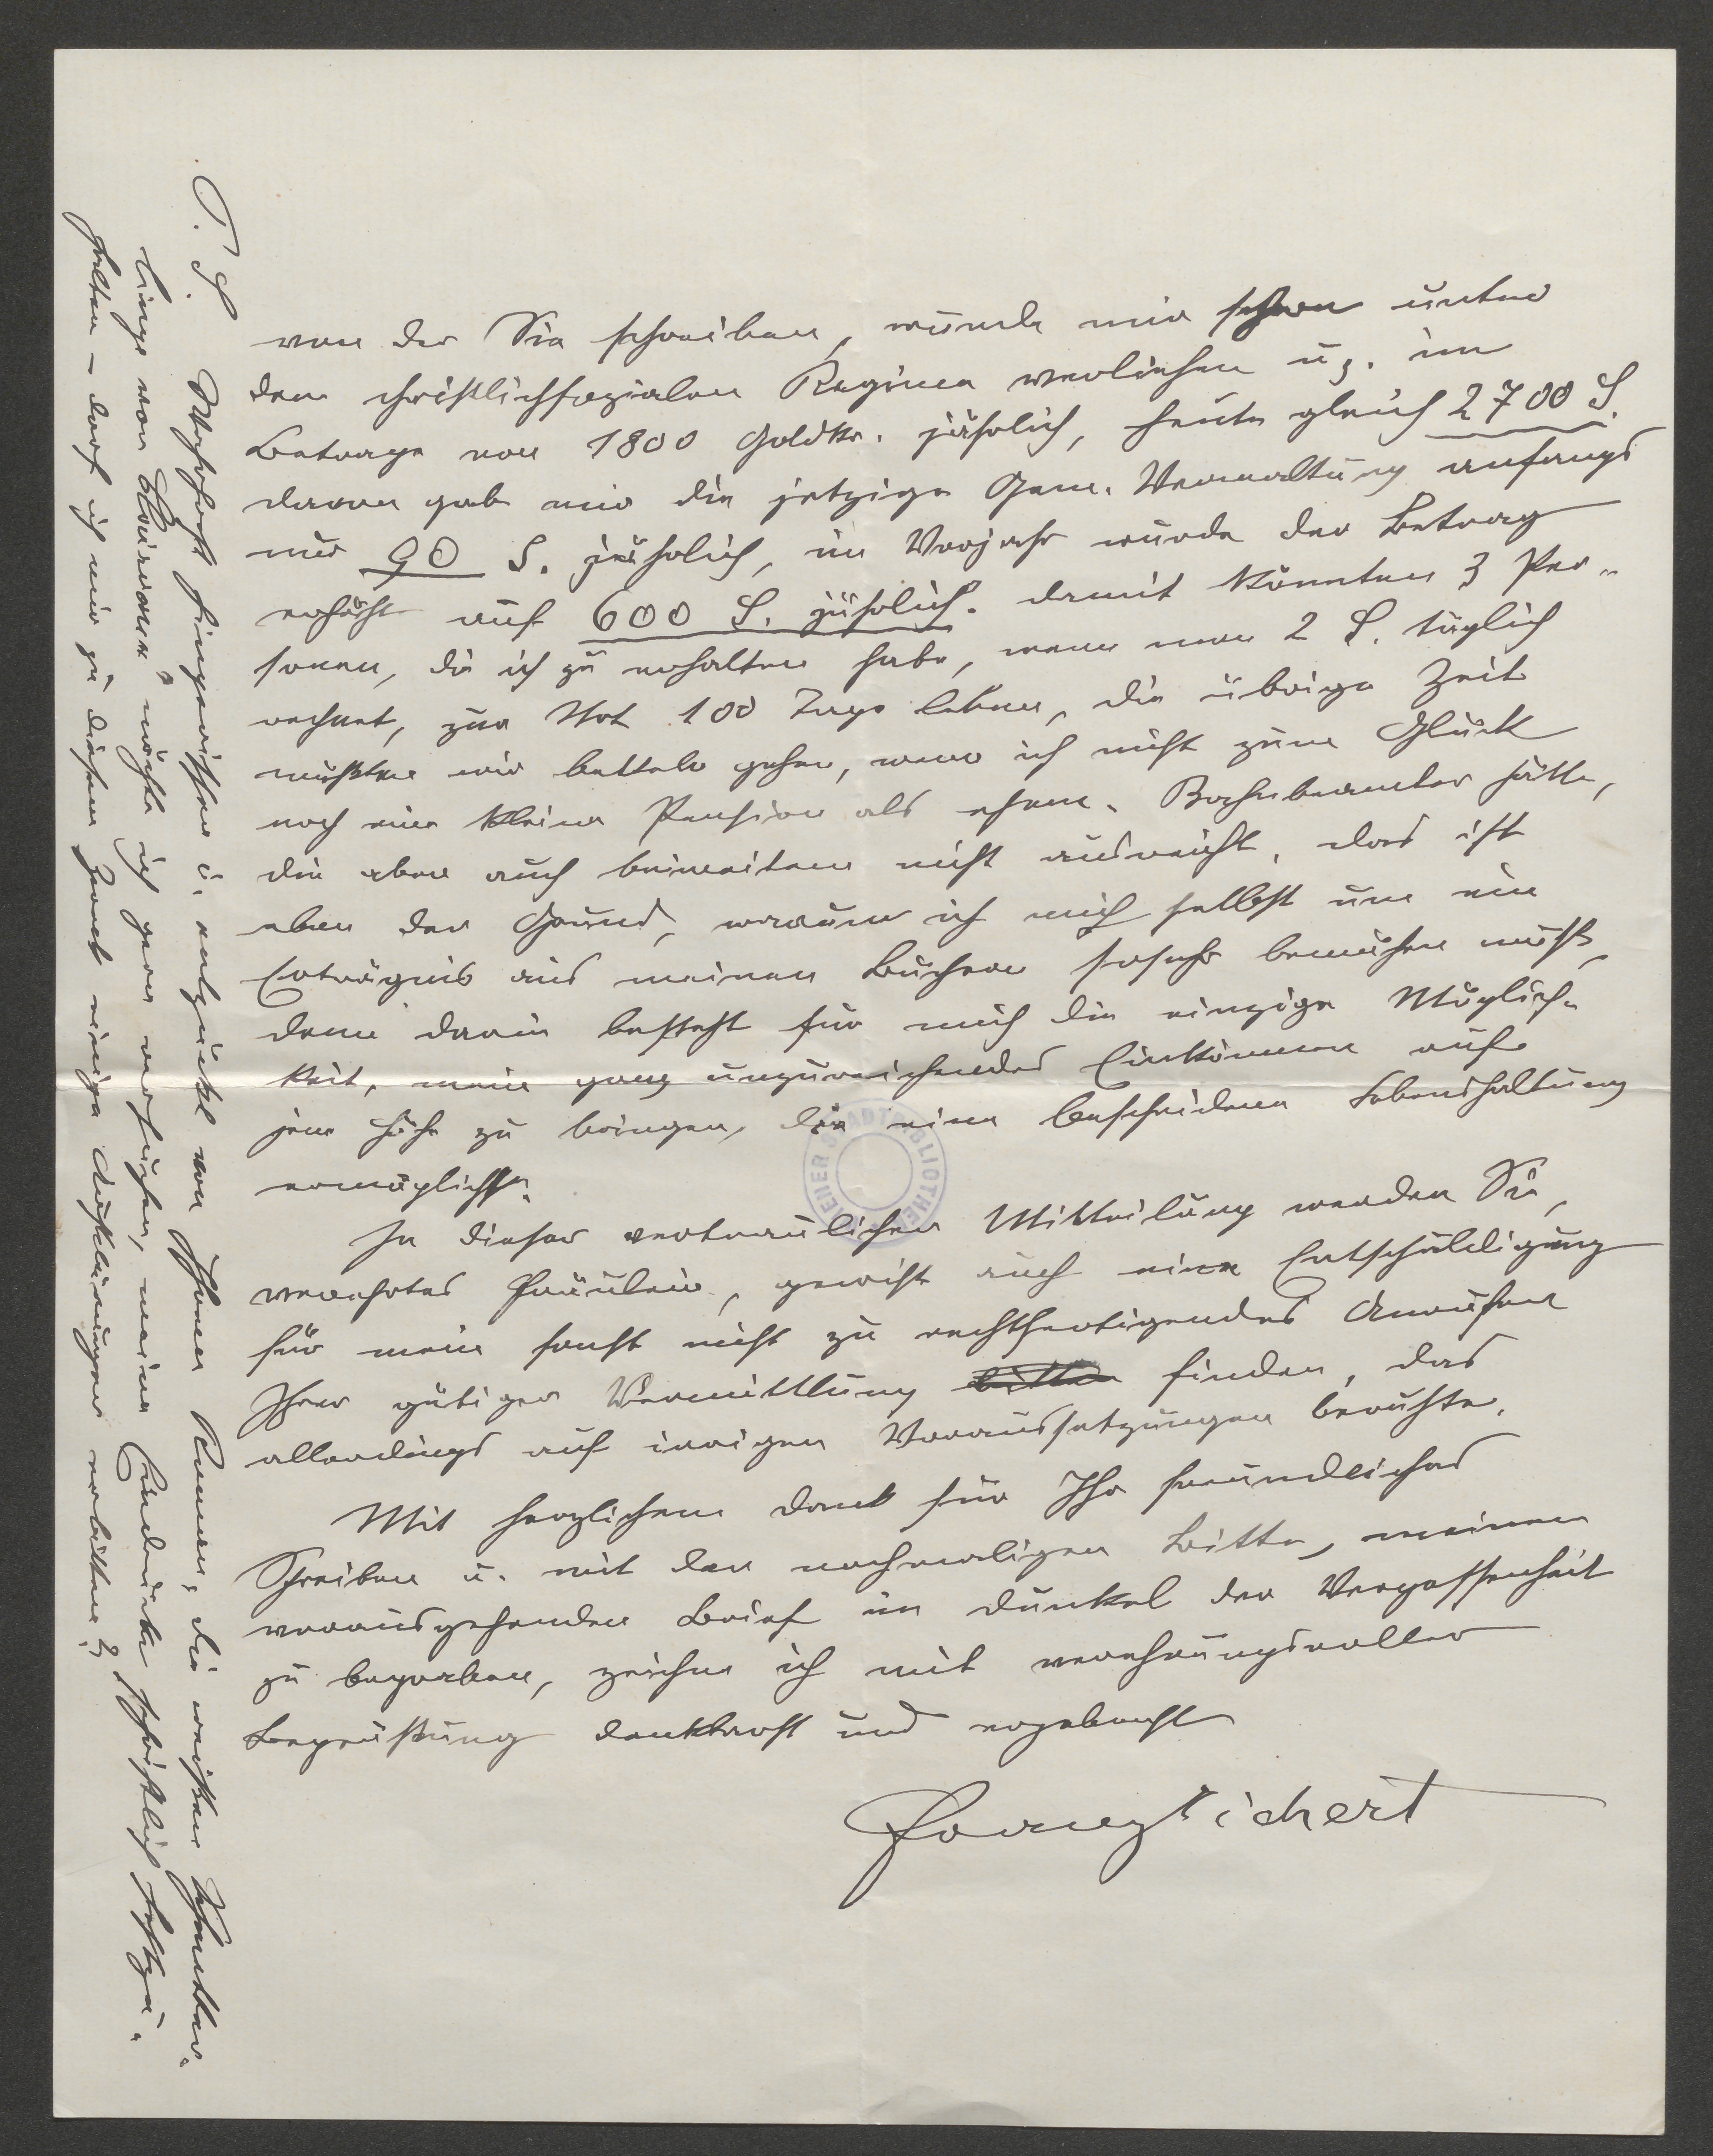 von der Sie schreiben, wurde mir schon unter
dem christlichsozialen Regime verliehen u. z. im
Betrage von 1800 Goldkr. jährlich, heute gleich 2700 S.
davon gab mir die jetzige Gem. Verwaltung anfangs
nur 90 S. jährlich, im Vorjahr wurde der Betrag
erhöht auf 600 S. jährlich. Damit könnten 3 Per-
sonen, die ich zu erhalten habe, wenn man 2 S. täglich
rechnet, zur Not 100 Tage leben, die übrige Zeit
müßten wir betteln gehen, wenn ich nicht zum Glück
noch eine kleine Pension als ehem. Bahnbeamter hätte,
die aber auch beiweitem nicht ausreicht. Das ist
eben der Grund, warum ich mich selbst um ein
Erträgnis aus meinen Büchern sosehr bemühen muß,
denn darin besteht für mich die einzige Möglich-
keit, mein ganz unzureichendes Einkommen auf
jene Höhe zu bringen, die eine bescheidene Lebenshaltung
ermöglicht.
In dieser vertraulichen Mitteilung werden Sie,
verehrtes Fräulein, gewiß auch eine Entschuldigung
für mein sonst nicht zu rechtfertigendes Anrufen
Ihrer gütigen Vermittlung bitten finden, das
allerdings auf irrigen Voraussetzungen beruhte.
Mit herzlichem Dank für Ihr freundliches
Schreiben u. mit der nochmaligen Bitte, meinen
vorausgehenden Brief im Dunkel der Vergessenheit
zu begraben, zeichne ich mit verehrungsvoller
Begrüßung dankbarst und ergebenst
Franz Kichert
P. S. Wahrhaft hingerissen u. entzückt von Ihrem Roman, die weißen Schmetter-
linge von Clairvaux" möchte ich gern versuchen, meine Eindrücke schriftlich festzu-
halten – darf ich mir zu diesem Zweck einige Aufklärungen erbitten?
WIENER STADTBIBLIOTHEK